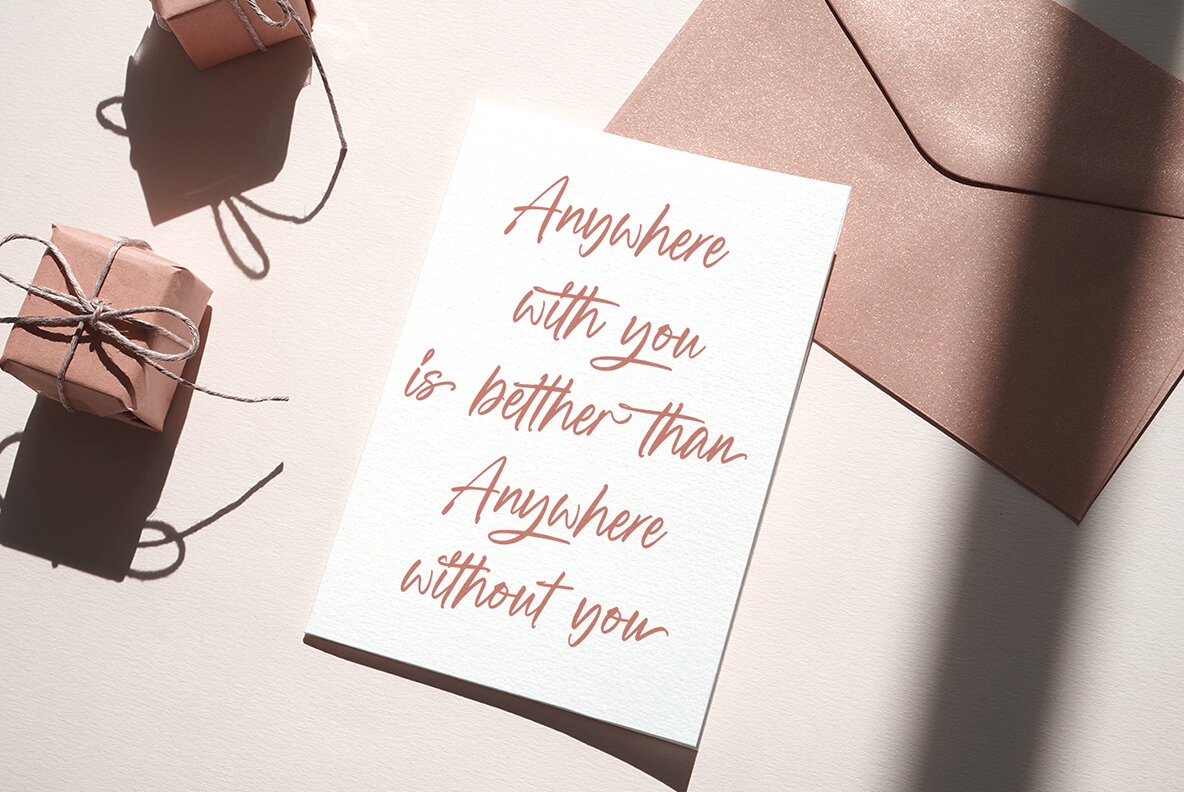 Anywhere
with you
is betther than
Anywhere
without you